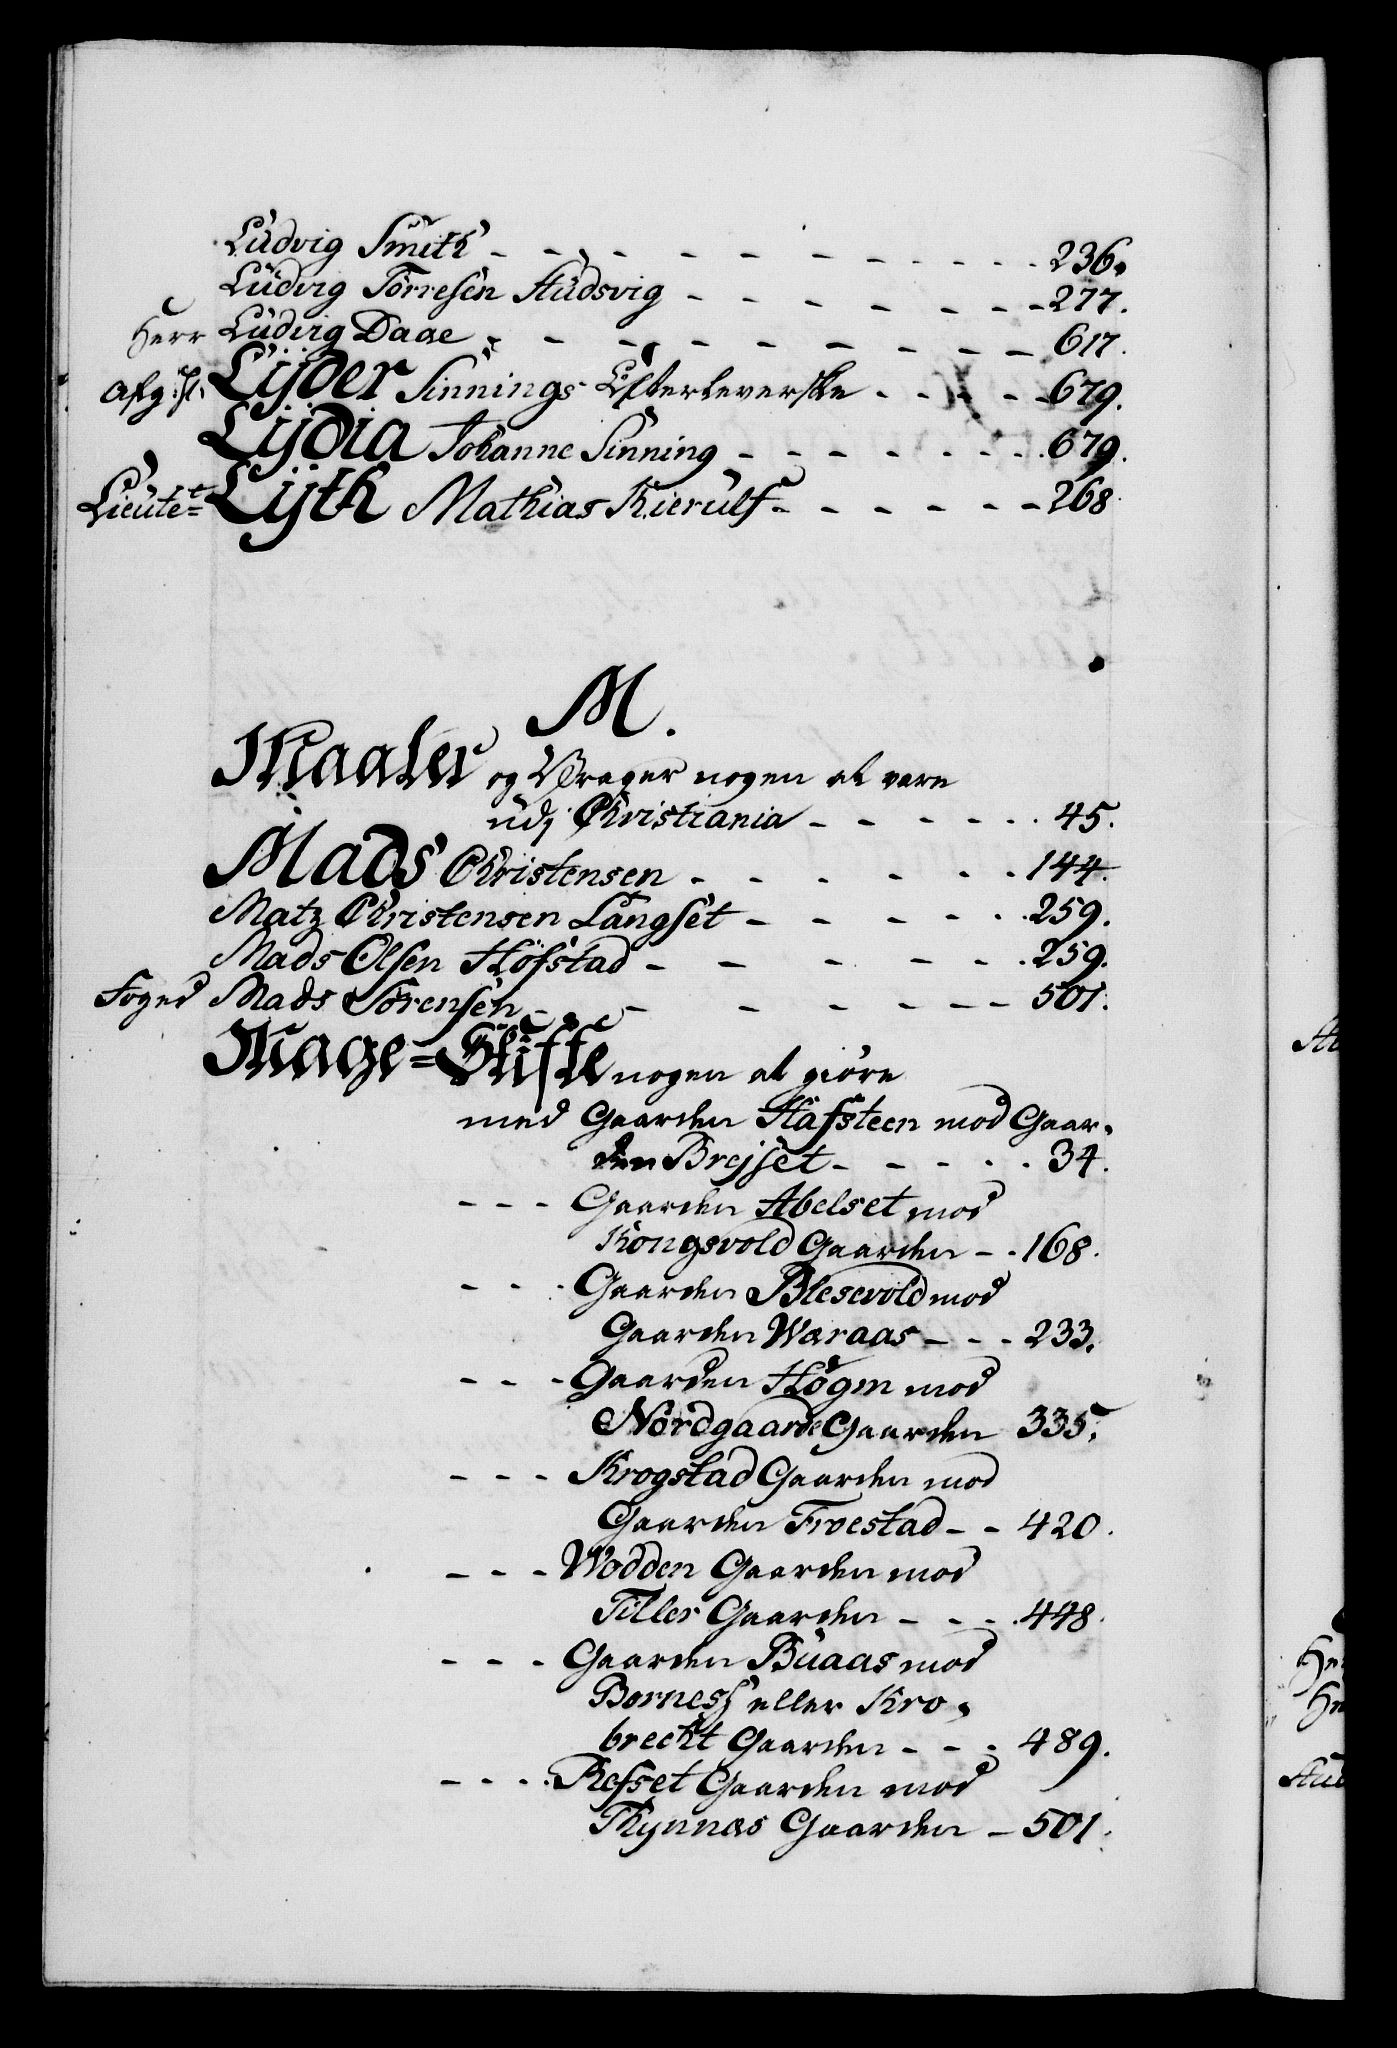 Ludvig Smith - - - - - - - - - - 236.
Ludvig Torresen Hudsvig - - - - - - - 277.
Herr Ludvig Daae - - - - - - - - - 617.
Afg: Lijder Sinnings Efterleverske - - - - 679.
Lijdia Johanne Sinning - - - - - - - 679.
Lieutet= Lijth Mathias Kierulf - - - - - - 268.
M.
Maaler og Vrager nogen at være
udj Christiania - - - - - - 45.
Mads Christensen - - - - - - - 144.
Matz Christensen Langset - - - - - - 259.
Mads Olsen Hofstad - - - - - - 259.
Foged Mads Sørensen - - - - - - - 501.
Mage=Skifte nogen at giøre
med Gaarden Hafsteen mod Gaar-
den Brejset - - - - - 34.
- - - Gaarden Abelset mod
Kongsvold Gaarden - - 168.
- - - Gaarden Blesevold mod
Gaarden Wæraas - - - 233.
- - - Gaarden Høgm mod
Nordgaarde Gaarden 335.
- - - Krogstad Gaarden mod
Gaarden Froestad - - 420.
- - - Wodden Gaarden mod
Tiller Gaarden - - - 448.
- - - Gaarden Buaas mod
Bornesh eller Kro-
brecht Gaarden - - - 489.
- - - Refset Gaarden mod
Thynnæs Gaarden - 501.